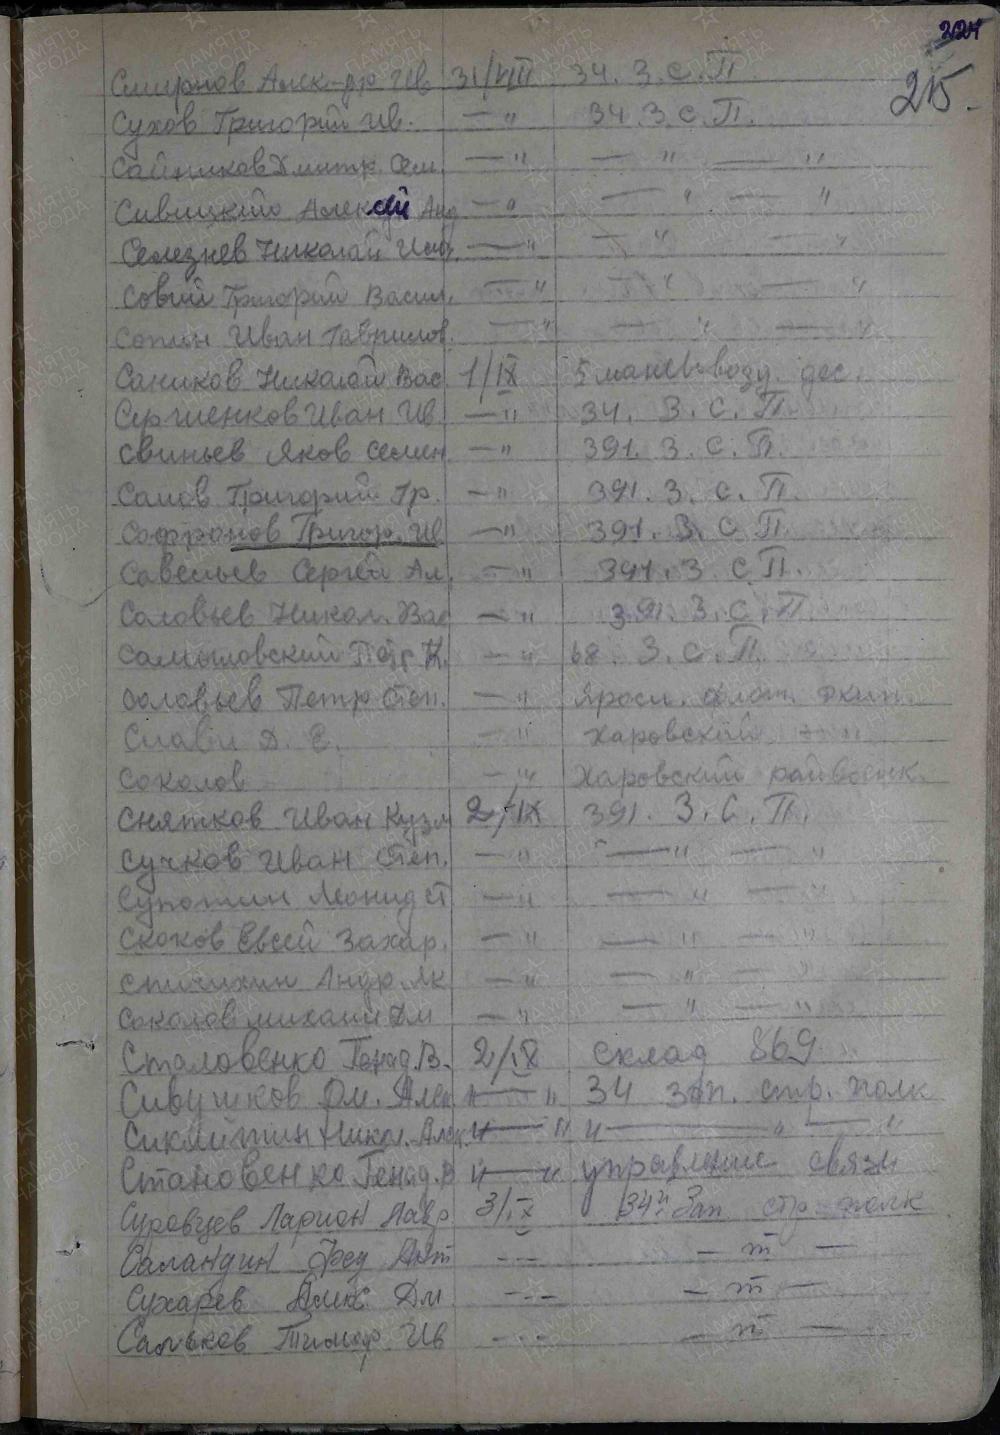 224
215.
Смирнов Алек-др Ив. 31/VIII 34. З. С. П.
Сухов Григорий Ив. — " 34. З. С. П.
Сайников Дмитр. Сем. — " — " — "
Сивицкий Алексей Анд — " — " — "
Селезнев Николай — " — " — "
Совий Григорий Васил. — " — " — "
Сопин Иван Гаврилов. — " — " — "
Саников Николай Вас 1/IX 5 манев. возд. дес.
Сергиенков Иван Ив — " 34. З. С. П.
Свиньев Яков Семен — " 391. З. С. П.
Самов Григорий Гр. — " 391. З. С. П.
Софронов Григор. Ив — " 391. З. С П.
Савельев Сергей Ал. — " 391. З. С П.
Соловьев Никол. Вас — " 391. З. С. П.
Самыловский Петр К. — " 68. З. С. П.
Соловьев Петр Степ. — " Яросл. флот. экип.
Д. Е. — " Харовский — "
Соколов — " Харовский райвоенк.
Снятков Иван Кузм 2/IX 391. З. С. П.
Сучков Иван Степ. — " — " — "
Супотин Леонид Ст — " — " — "
Скоков Евсей Захар. — " — " — "
Спиихин Андр. Як — " — " — "
Соколов Михаил Дм — " — " — "
Сталовенко Генад. В. 2/IX склад 869
Сивушков Дм. Алек " — " 34 зап. стр. полк
Никол. Алек. " — " " — " — "
Становенко Генад. В " — " управление связи
Суровцев Ларион Лавр 3/IX 34й Зап стр полк
Саландин Фед Ант - - - — т —
Сухарев Алекс Дм - - - — т —
Сальков Тимоф. Ив - - - — т —